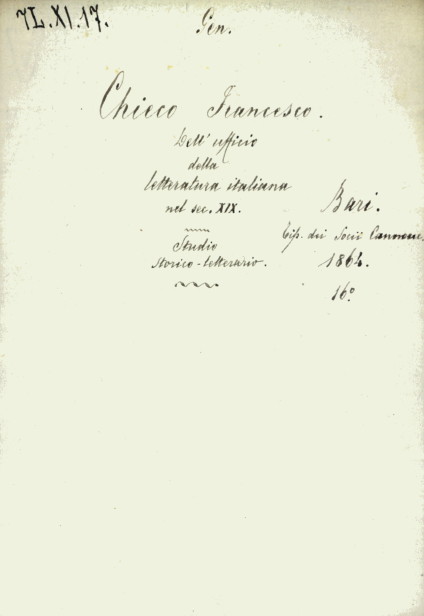 7L.XI.17.
Gen.
Chieco Francesco.
Dell' ufficio
della
letteratura italiana
nel sec. XIX.
Studio
storico-letterario.
Bari.
Tip. dei Socii Cannone.
1864.
16°